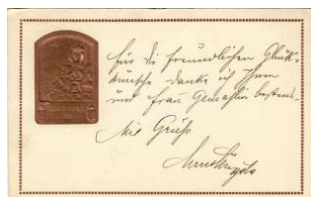 für die freundlichen Glück-
wünsche danke ich Ihnen
und Frau Gemahlin bestens.
Mit Gruß